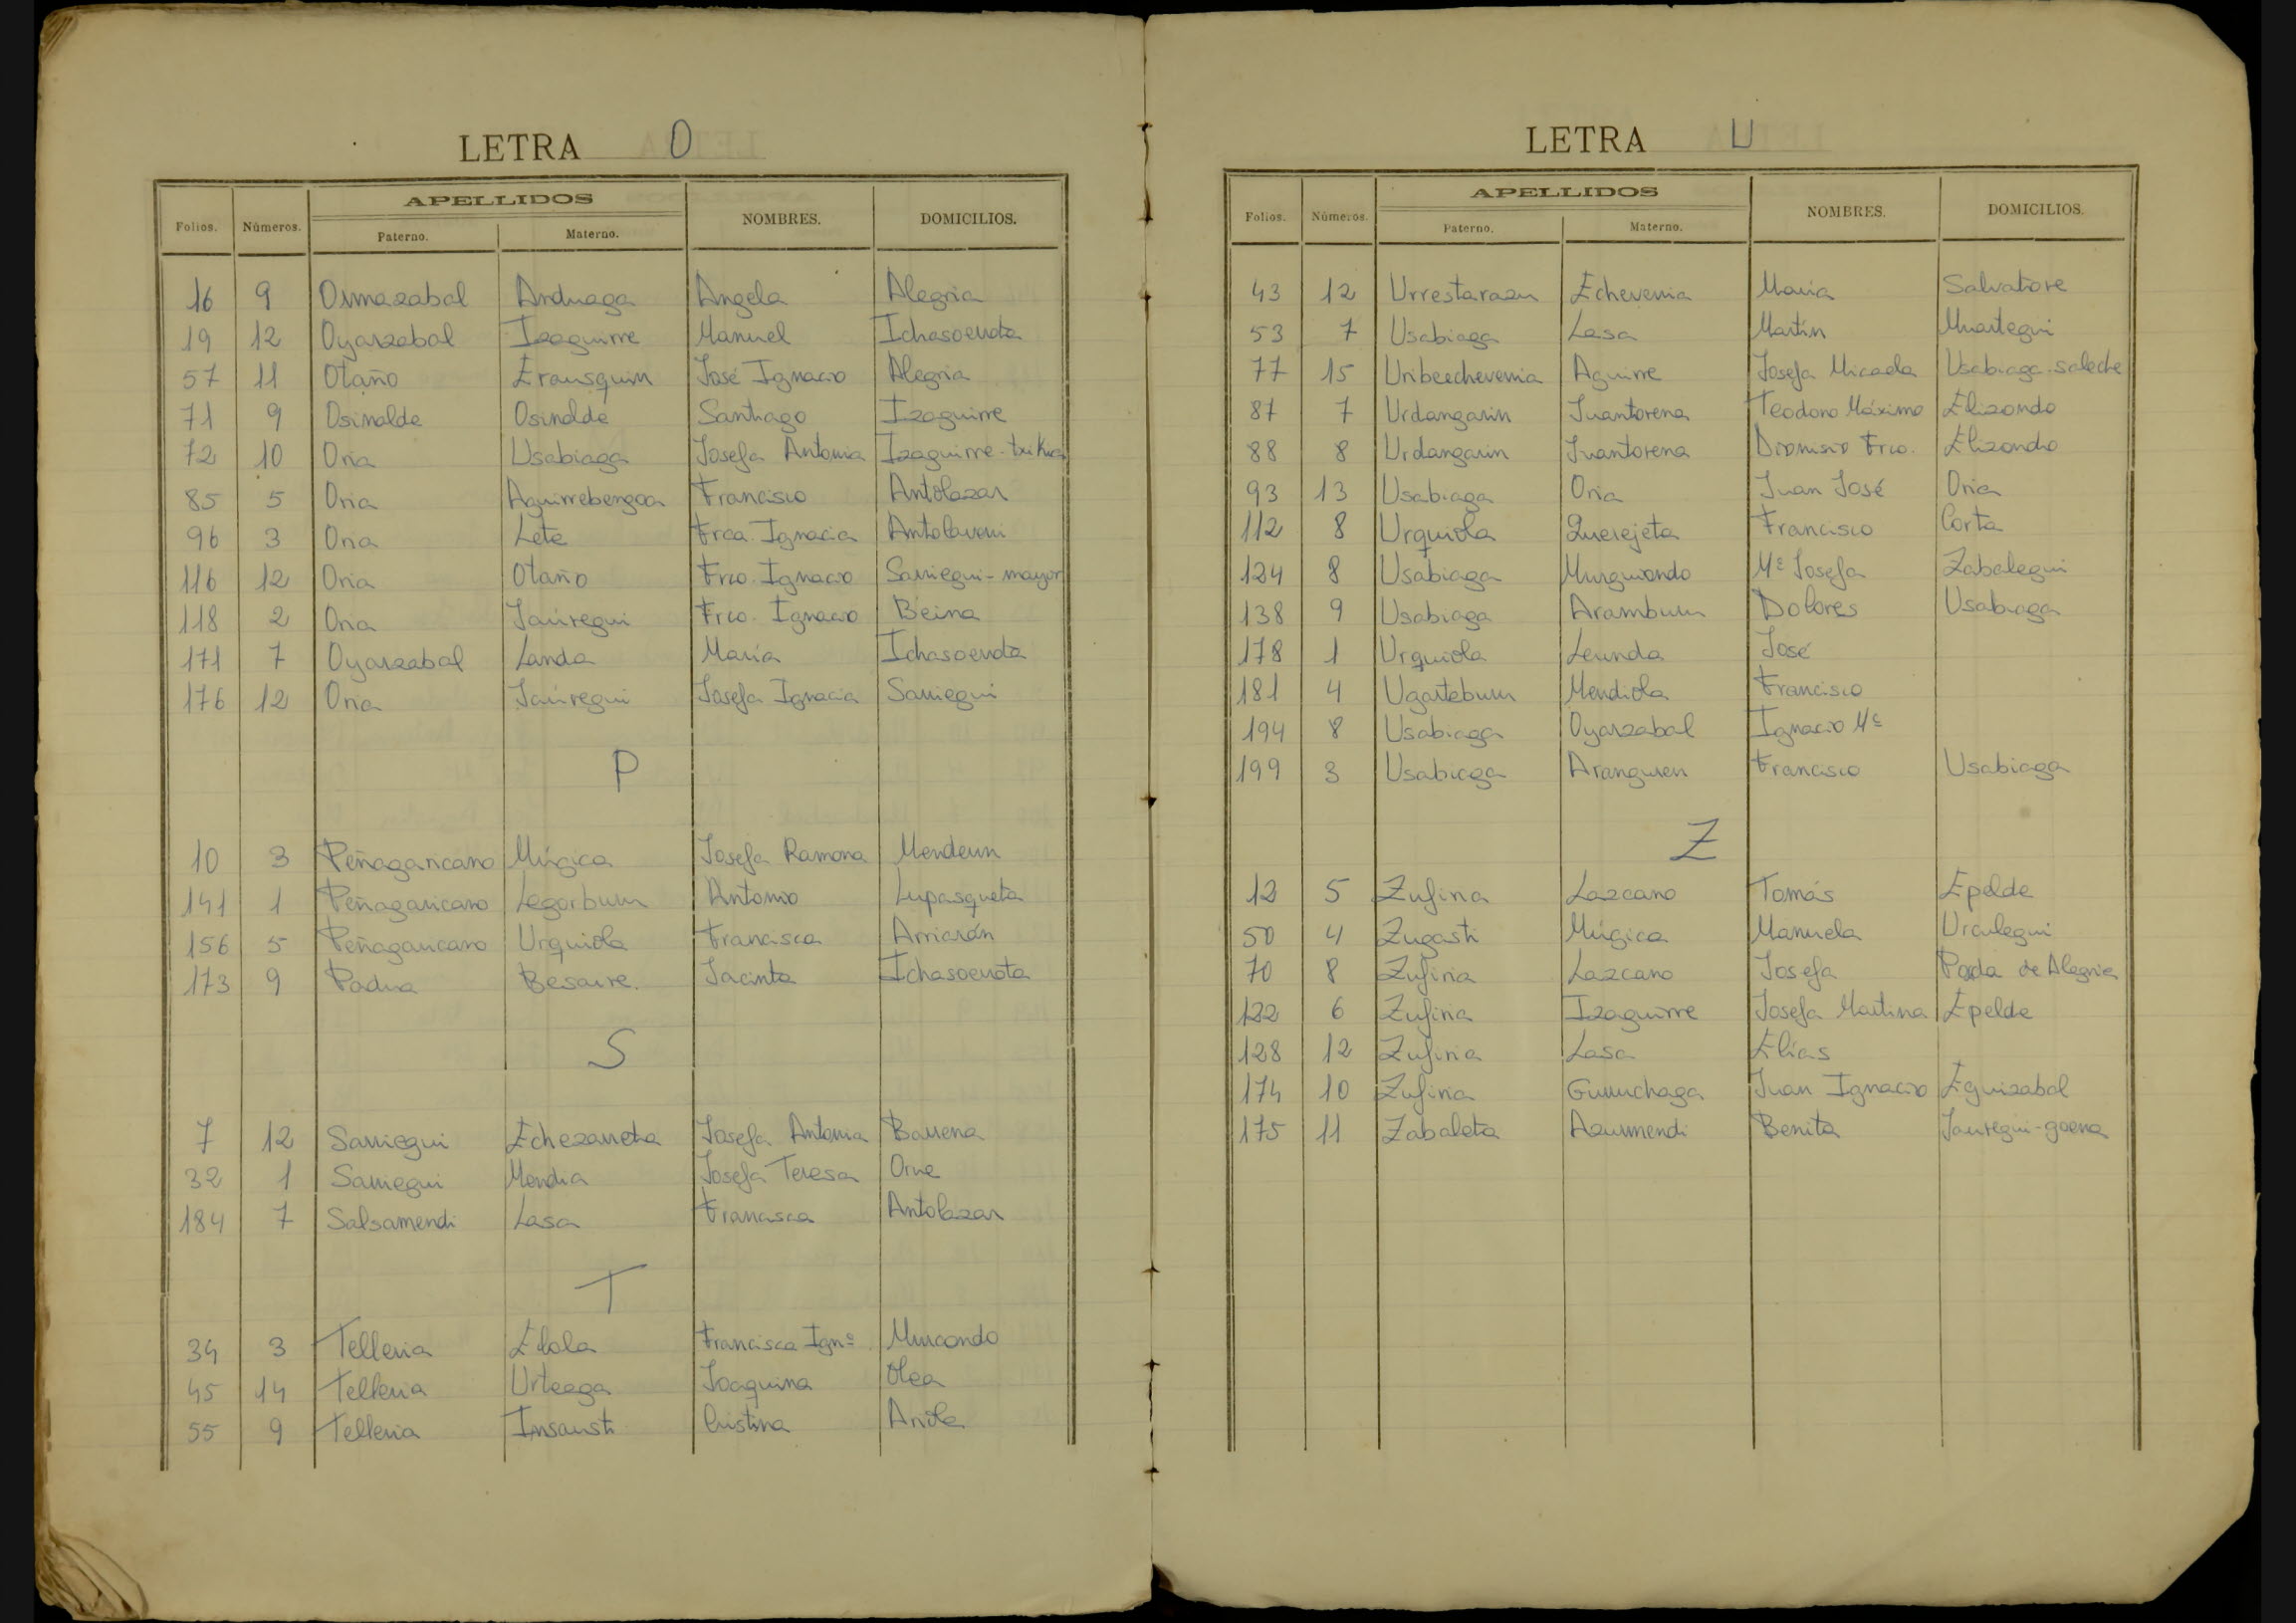 LETRA O
APELLIDOS
Folios. Números. Paterno. Materno. NOMBRES. DOMICILIOS.
16 9 Ormazabal Anduaga Angela Alegria
19 12 Oyarzabal Izaguirre Manuel Ichasoerrota
57 11 Otaño Erausquin José Ignacio Alegria
71 9 Osinalde Osinalde Santiago Izaguirre
72 10 Oria Usabiaga Josefa Antonia Izaguirre-txikia
85 5 Oria Aguirrebengoa Francisco Antolazar
96 3 Oria Lete Frca. Ignacia
116 12 Oria Otaño Frco. Ignacio Sarriegui-mayor
118 2 Oria Jaúregui Frco. Ignacio Beina
171 7 Oyarzabal Landa María Ichasoerrota
176 12 Oria Jaúregui Josefa Ignacia Sarriegui
P
10 3 Peñagaricano Múgica Josefa Ramona Menderrn
141 1 Peñagaricano Legorburu Antonio Lupasqueta
156 5 Peñagaricano Urquiola Francisca Arriarán
173 9 Padua Jacinta Ichasoerrota
S
7 12 Sarriegui Echezarreta Josefa Antonia Barrena
32 1 Sarriegui Mendia Josefa Teresa
184 7 Salsamendi Lasa Francisca Antolazar
T
34 3 Telleria Elola Francisca Ignª Muxcondo
45 14 Telleria Urteaga Joaquina Olea
55 9 Telleria Insausti Cristina Ariola
LETRA U
APELLIDOS
Folios. Números. Paterno. Materno. NOMBRES. DOMICILIOS.
43 12 Urrestarazu Echeverria María Salvatore
53 7 Usabiaga Lasa Martín Muartegui
77 15 Uribeecheverria Aguirre Josefa Micaela Usabiaga-saleche
87 7 Urdangarin Juantorena Teodoro Máximo Elizondo
88 8 Urdangarin Juantorena Dionisio Frco. Elizondo
93 13 Usabiaga Oria Juan José Oria
112 8 Urquiola Querejeta Francisco Corta
124 8 Usabiaga Murguiondo Mª Josefa Zabalegui
138 9 Usabiaga Aramburu Dolores Usabiaga
178 1 Urquiola Leunda José
181 4 Ugarteburu Mendiola Francisco
194 8 Usabiaga Oyarzabal Ignacio Mª
199 3 Usabiaga Aranguren Francisco Usabiaga
Z
12 5 Zufiria Lazcano Tomás Epelde
50 4 Zugasti Múgica Manuela Urculegui
70 8 Zufiria Lazcano Josefa Pada de Alegria
122 6 Zufiria Izaguirre Josefa Martina Epelde
128 12 Zufiria Lasa Elías
174 10 Zufiria Guruchaga Juan Ignacio Eguizabal
175 11 Zabaleta Azurmendi Benita Jauregui-goena